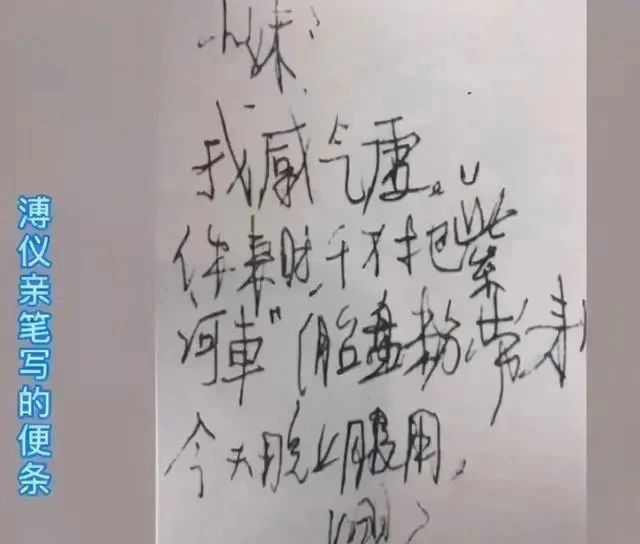 小妹：
我感气虚。
你来时，千万把"紫
河車"（胎盘粉）带来，
今天晚上服用。
溥仪亲笔写的便条